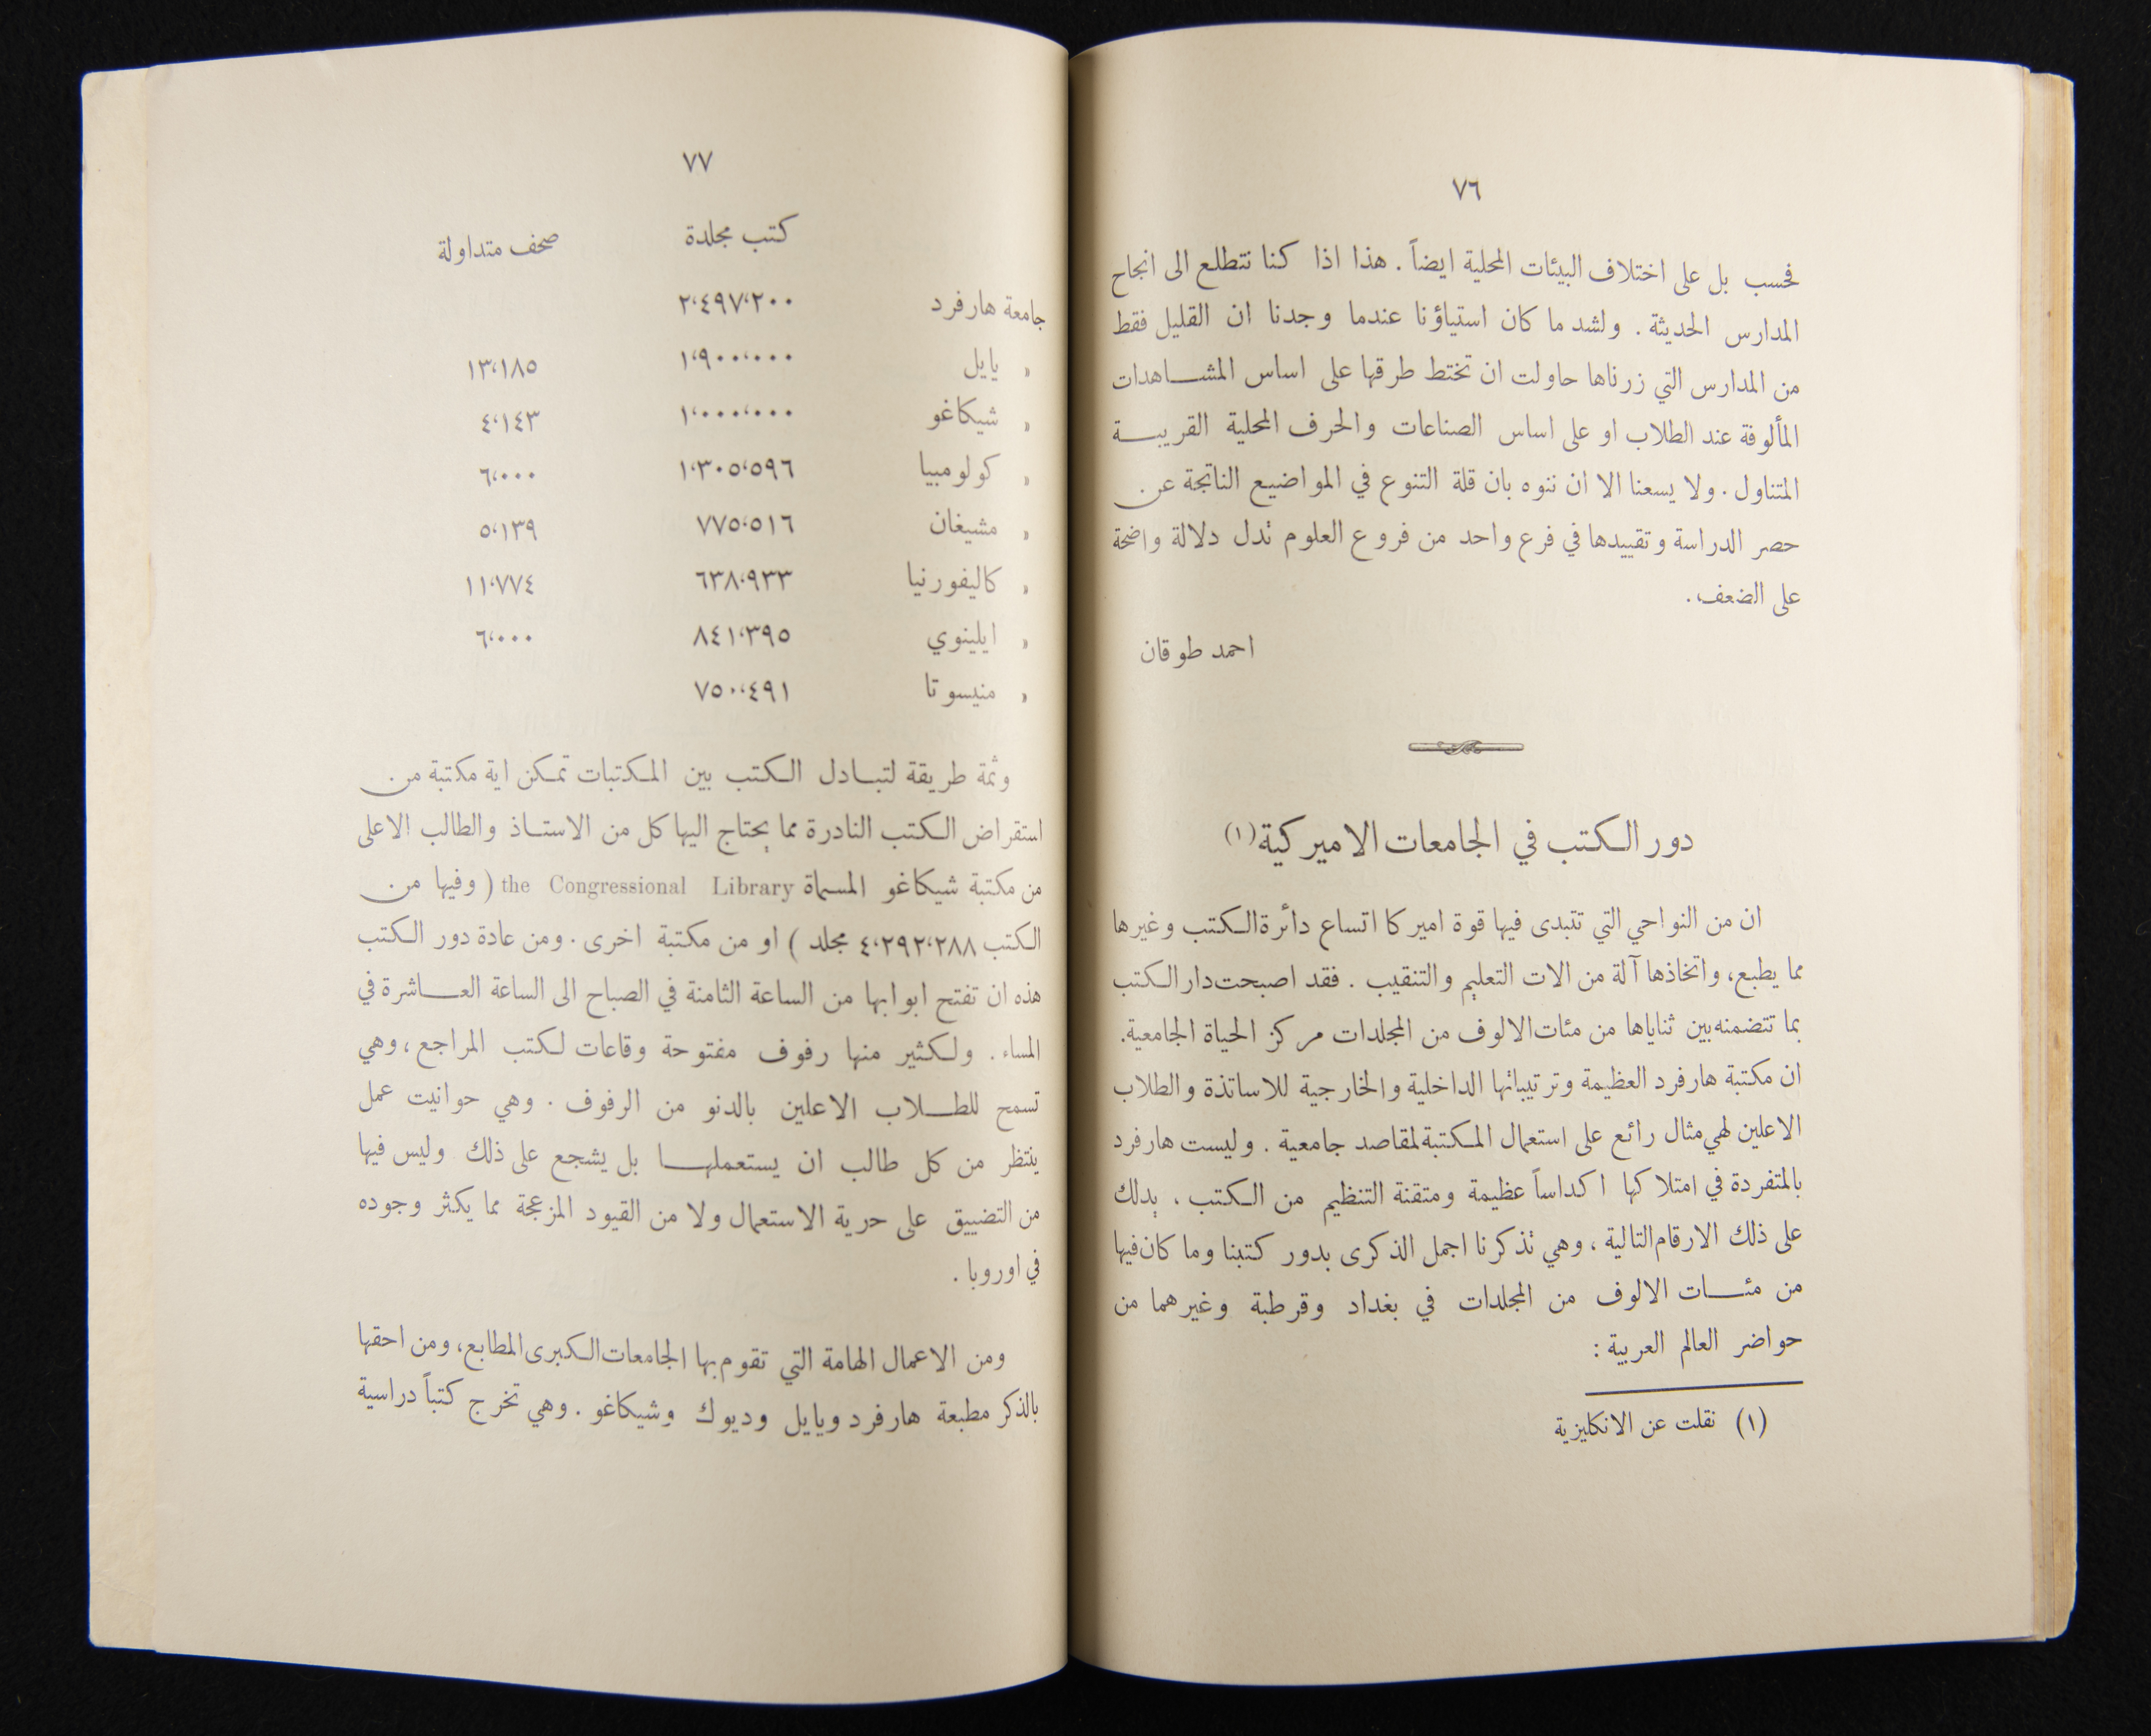 ٧٦
فحسب بل على اختلاف البيئات المحلية ايضاً . هذا اذا كنا نتطلع الى انجاح
المدارس الحديثة . ولشد ما كان استياؤنا عندما وجدنا ان القليل فقط
من المدارس التي زرناها حاولت ان تختط طرقها على اساس المشاهدات
المألوفة عند الطلاب او على اساس الصناعات والحرف المحلية القريبة
المتناول . ولا يسعنا الا ان ننوه بان قلة التنوع في المواضيع الناتجة عن
حصر الدراسة وتقييدها في فرع واحد من فروع العلوم تدل دلالة واضحة
على الضعف .
احمد طوقان
دور الكتب في الجامعات الاميركية (١)
ان من النواحي التي تتبدى فيها قوة اميركا اتساع دائرة الكتب وغيرها
مما يطبع، واتخاذها آلة من الات التعليم والتنقيب . فقد اصبحت دار الكتب
بما تتضمنه بين ثناياها من مئات الالوف من المجلدات مركز الحياة الجامعية.
ان مكتبة هارفرد العظيمة وترتيباتها الداخلية والخارجية للاساتذة والطلاب
الاعلين لهي مثال رائع على استعمال المكتبة لمقاصد جامعية . وليست هارفرد
بالمتفردة في امتلاكها اكداساً عظيمة ومتقنة التنظيم من الكتب ، يدلك
على ذلك الارقام التالية ، وهي تذكرنا اجمل الذكرى بدور كتبنا وما كان فيها
من مئات الالوف من المجلدات في بغداد وقرطبة وغيرهما من
حواضر العالم العربية :
(١) نقلت عن الانكليزية
٧٧
كتب مجلدة صحف متداولة
جامعة هارفرد ٢،٤٩٧،٢٠٠
« يايل ١،٩٠٠،٠٠٠ ١٣،١٨٥
« شيكاغو ١،٠٠٠،٠٠٠ ٤،١٤٣
« كولومبيا ١،٣٠٥،٥٩٦ ٦،٠٠٠
« مشيغان ٧٧٥،٥١٦ ٥،١٣٩
« كاليفورنيا ٦٣٨،٩٣٣ ١١،٧٧٤
« ايلينوي ٨٤١،٣٩٥ ٦،٠٠٠
« منيسوتا ٧٥٠،٤٩١
وثمة طريقة لتبادل الكتب بين المكتبات تمكن اية مكتبة من
استقراض الكتب النادرة مما يحتاج اليها كل من الاستاذ والطالب الاعلى
من مكتبة شيكاغو المسماة the Congressional Library ( وفيها من
الكتب ٤،٢٩٢،٢٨٨ مجلد ) او من مكتبة اخرى . ومن عادة دور الكتب
هذه ان تفتح ابوابها من الساعة الثامنة في الصباح الى الساعة العاشرة في
المساء . ولكثير منها رفوف مفتوحة وقاعات لكتب المراجع ، وهي
تسمح للطلاب الاعلين بالدنو من الرفوف . وهي حوانيت عمل
ينتظر من كل طالب ان يستعملها بل يشجع على ذلك وليس فيها
من التضييق على حرية الاستعمال ولا من القيود المزعجة مما يكثر وجوده
في اوروبا .
ومن الاعمال الهامة التي تقوم بها الجامعات الكبرى المطابع، ومن احقها
بالذكر مطبعة هارفرد ويايل وديوك وشيكاغو . وهي تخرج كتباً دراسية